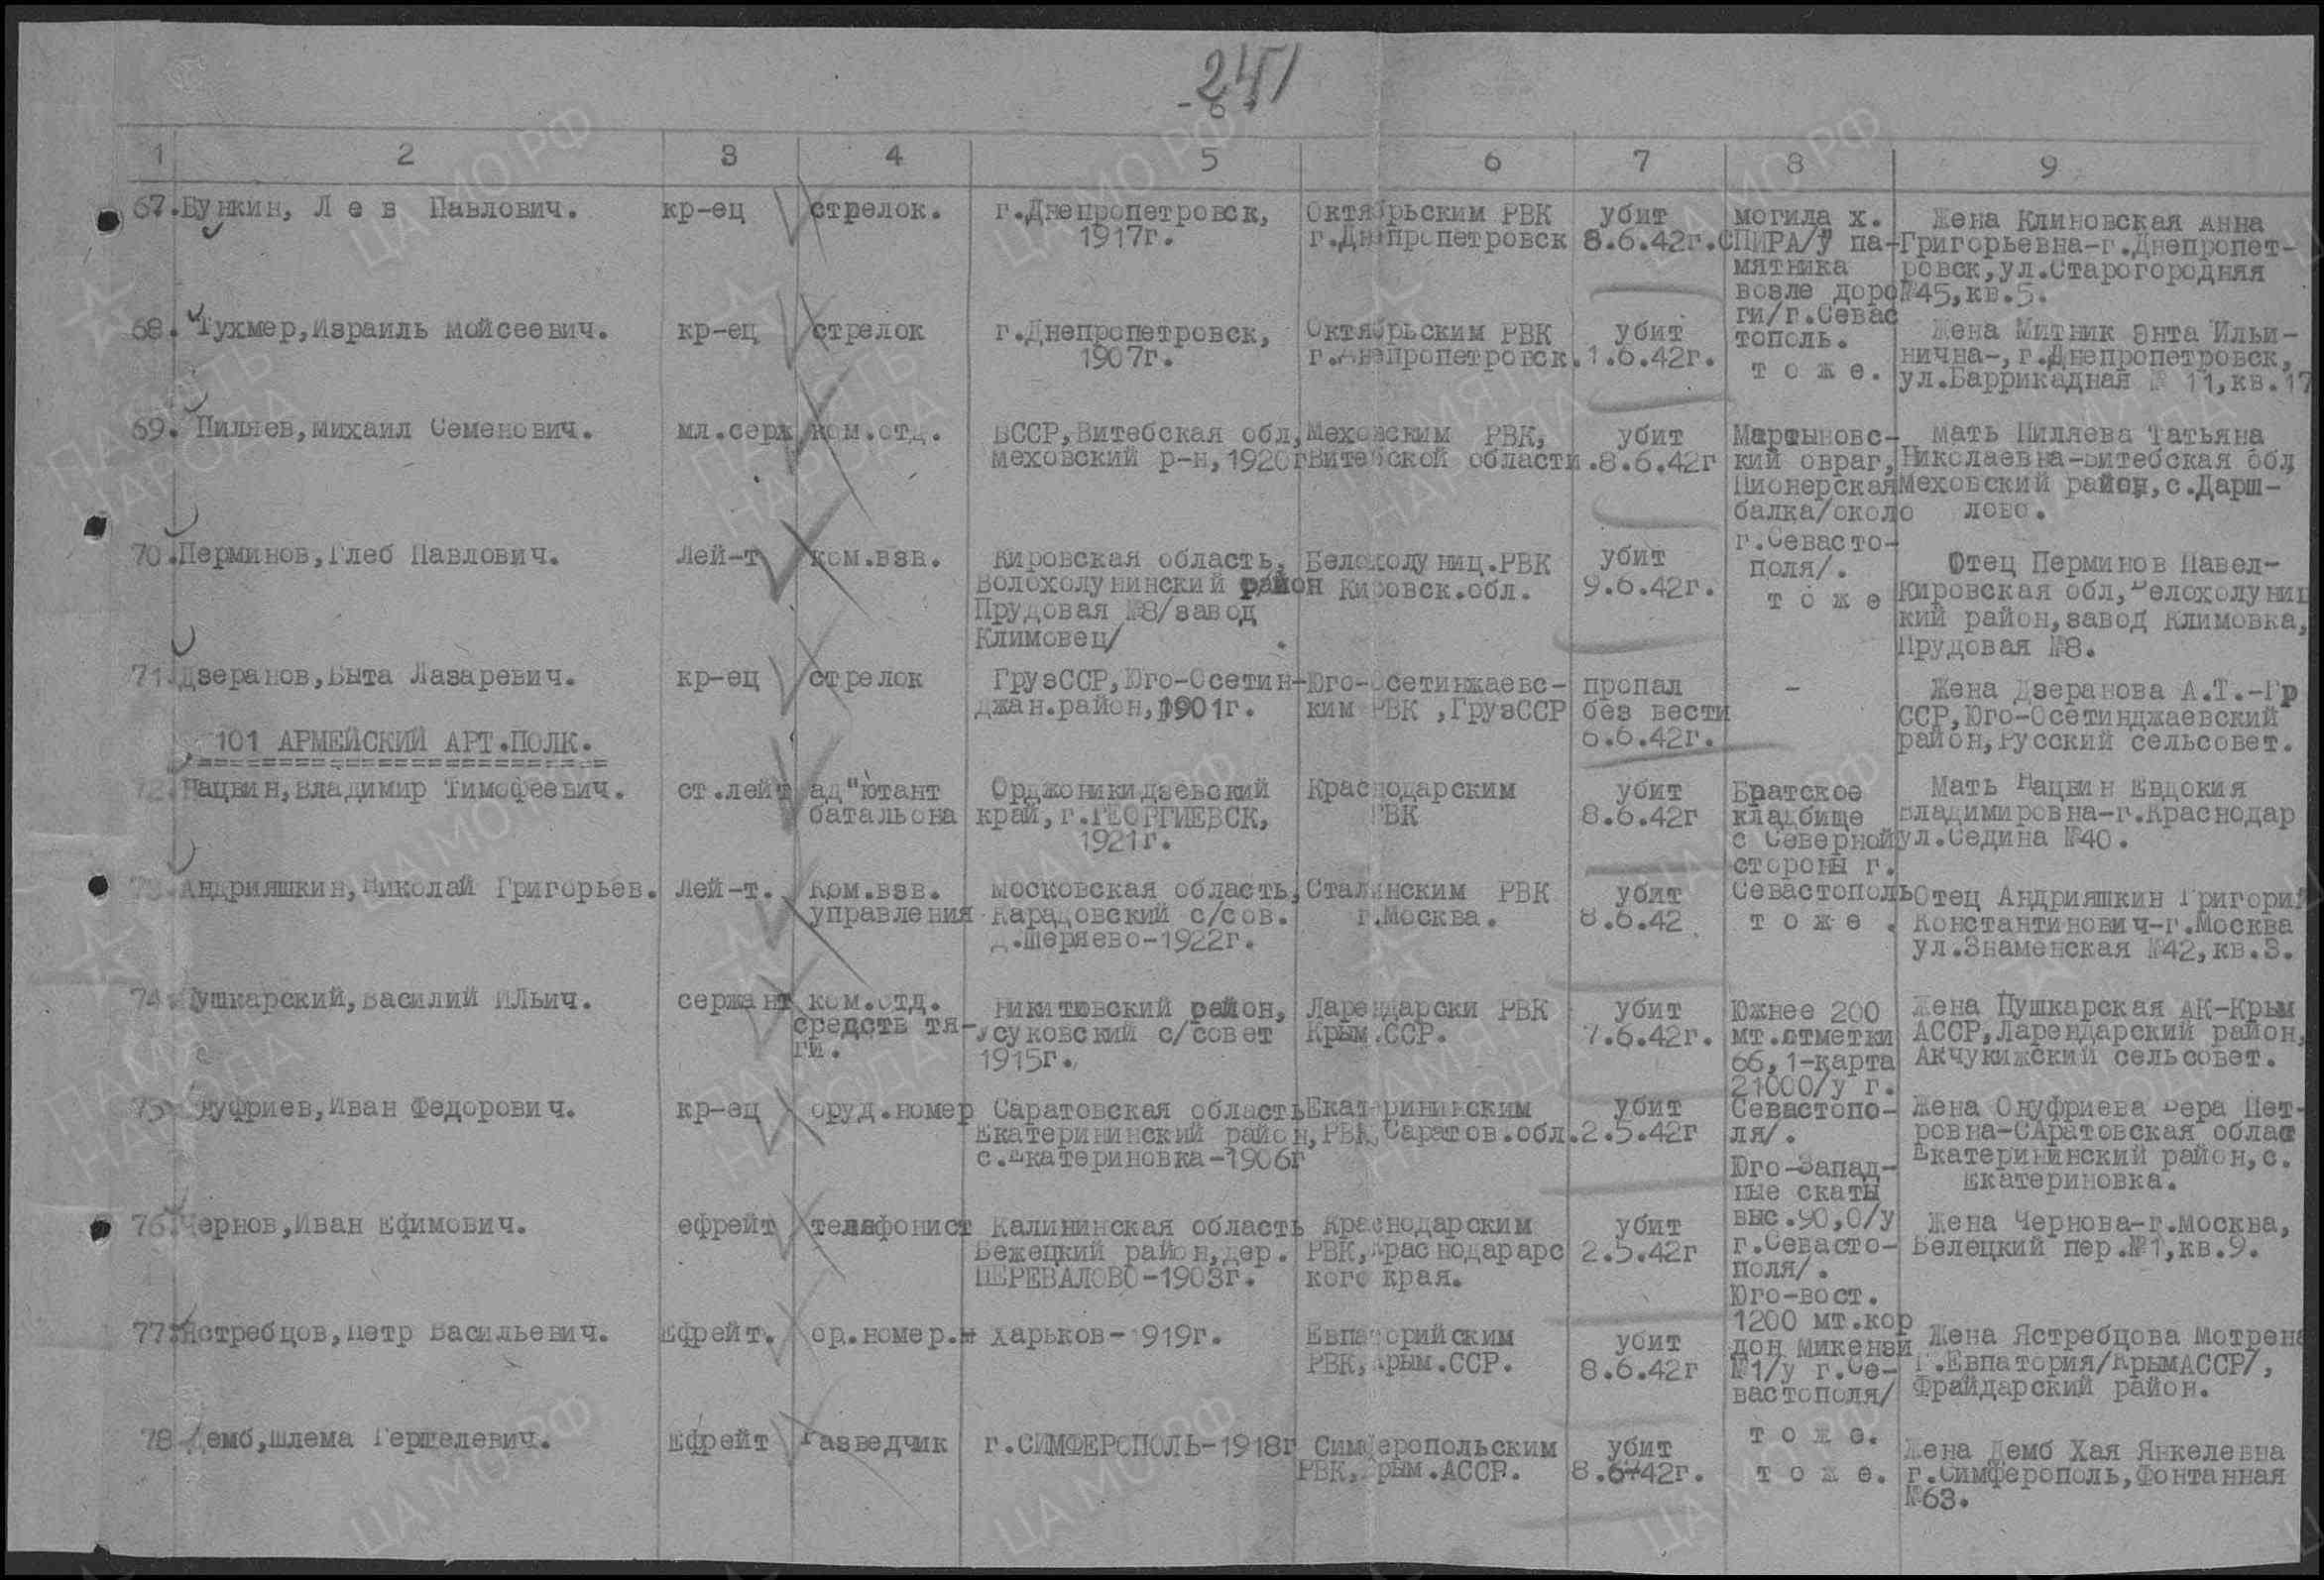 241
- 6 -
1 2 3 4 5 6 7 8 9
67. Бункин, Л е в Павлович. кр-ец стрелок. г.Днепропетровск, 1917г. Октябрьским РВК г.Днепропетровск убит 8.6.42г. могила х. СПИРА/У па-мятника возле доро-ги/г.Севас тополь. Жена Клиновская Анна Григорьевна-г.Днепропет-ровск,ул.Старогородняя №45,кв.5.
68. Тухмер,Израиль Мойсеевич. кр-ец стрелок г.Днепропетровск, 1907г. Октябрьским РВК г.Днепропетровск. убит 1.6.42г. т о ж е. Жена Митник Энта Ильи-нична-,г.Днепропетровск, ул.Баррикадная № 11,кв.17
69. Пиляев,Михаил Семенович. мл.серж ком.отд. БССР,Витебская обл, Меховский р-н,1920г Меховским РВК, Витебской области. убит 8.6.42г Мартыновс-кий овраг, Пионерская балка/около г.Севасто-поля/. Мать Пиляева Татьяна Николаевна-Витебская обл, Меховский район,с.Дарш-лово.
70. Перминов,Глеб Павлович. Лей-т ком.взв. Кировская область, Волохолунинский район Прудовая №8/завод Климовец/ Белохолуниц.РВК Кировск.обл. убит 9.6.42г. т о ж е Отец Перминов Павел- Кировская обл,Белохолуниц кий район,завод Климовка, Прудовая №8.
71. Дзеранов,Быта Лазаревич. кр-ец стрелок ГрузССР,Юго-Осетин-джан.район,1901г. Юго-Осетинжаевс-ким РВК ,ГрузССР пропал без вести 6.6.42г. - Жена Дзеранова А.Т.-Гр ССР,Юго-Осетинджаевский район,Русский сельсовет.
101 АРМЕЙСКИЙ АРТ.ПОЛК.
72. Нацвин,Владимир Тимофеевич. ст.лейт ад"ютант батальона Орджоникидзевский край,г.ГЕОРГИЕВСК, 1921г. Краснодарским ГВК убит 8.6.42г Братское кладбище с Северной стороны г. Севастополь Мать Нацвин Евдокия Владимировна-г.Краснодар ул.Седина №40.
73. Андрияшкин,Николай Григорьев. Лей-т. Ком.взв. управления Московская область, Карадовский с/сов. д.Шеряево-1922г. Сталинским РВК г.Москва. убит 8.6.42 т о ж е . Отец Андрияшкин Григорий Константинович-г.Москва ул.Знаменская №42,кв.3.
74. Пушкарский,Василий ИЛьич. сержант ком.отд. средств тя-ги. Никитовский район, Усуковский с/совет 1915г. Лареядарски РВК Крым.ССР. убит 7.6.42г. Южнее 200 мт.отметки 66,1-карта 21000/у г. Севастопо-ля/. Жена Пушкарская АК-Крым АССР,Ларендарский район, Акчукижский сельсовет.
75. Онуфриев,Иван Федорович. кр-ец оруд.номер Саратовская область Екатерининский район, с.Екатериновка-1906г Екатерининским РВК,Саратов.обл. убит 2.5.42г Юго-Запад-ные скаты выс.90,0/у г.Севасто-поля/. Жена Онуфриева Вера Пет-ровна-САратовская област Екатерининский район,с. Екатериновка.
76. Чернов,Иван Ефимович. ефрейт телефонист Калининская область Бежецкий район,дер. ПЕРЕВАЛОВО-1903г. Краснодарским РВК,Краснодарарс кого края. убит 2.5.42г Юго-вост. 1200 мт.кор дон Микензи №1/у г.Се-вастополя/ Жена Чернова-г.Москва, Белецкий пер.№1,кв.9.
77. Ястребцов,Петр Васильевич. Ефрейт. ор.номер. Харьков-1919г. Евпаторийским РВК,Крым.ССР. убит 8.6.42г т о ж е. Жена Ястребцова Мотрена Г.Евпатория/КрымАССР/, Фрайдарский район.
78 Демб,Шлема Гершелевич. Ефрейт Разведчик г.СИМФЕРОПОЛЬ-1918г Симферопольским РВК,Крым.АССР. убит 8.6.42г. т о ж е. Жена Демб Хая Янкелевна г.Симферополь,Фонтанная №63.